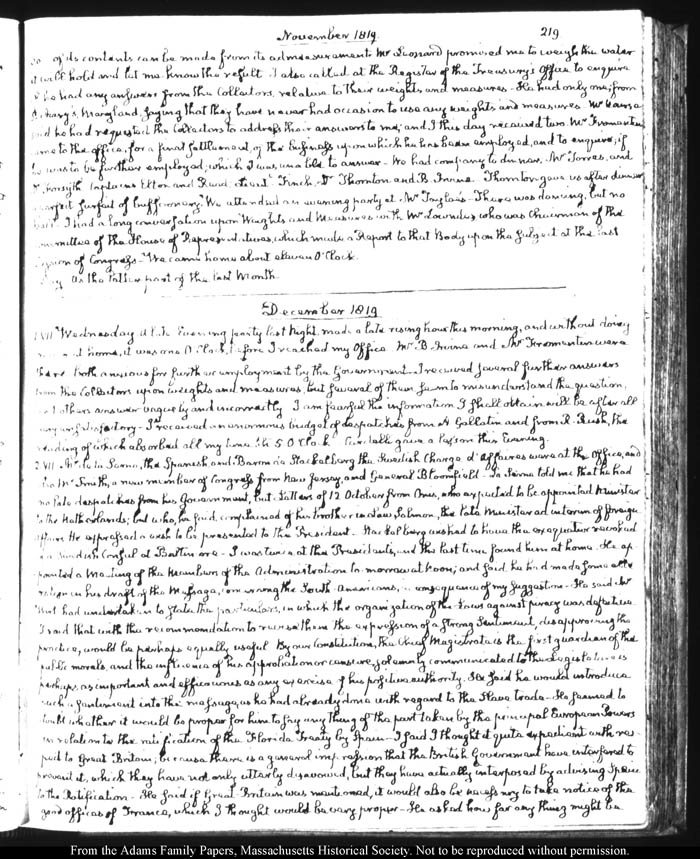 November 1819.
219
of its contents can be made from its admeasurement. Mr Leonard promised me to weigh the water
it will hold and let me know the result. I also called at the Register of the Treasury's Office to enquire
he had any answers from the Collectors, relative to their weights and measures. He had only one, from
Mary's, Maryland, saying that they have never had occasion to use any weights and measures. Mr
he had requested the Collectors to address their answers to me; and I this day received two. Mr Fromentin
came to the office, for a final settlement of the business upon which he has been employed, and to enquire, if
was to be further employed, which I was unable to answer. We had company to dinner. Mr Torres, and
Forsyth Captains Elton and Read, Lieutt Finch, Dr Thornton and B. Irvine. Thornton gave us after dinner
surfeit of buffoonery. We attended an evening party at Mr Tayloe's. There was dancing, but no
I had a long conversation upon Weights and Measures with Mr Lowndes who was Chairman of the
Committee of the House of Representatives, which made a Report to that Body upon the subject at the last
Session of Congress. We came home about eleven O'Clock.
As the latter part of the last Month.
December 1819
Wednesday. A late Evening party last Night, made a late rising hour this morning, and without doing
at home, it was one O'Clock, before I reached my Office. Mr B. Irvine and Mr Fromentin were
there both anxious for further employment by the Government. I received several further answers
from the Collectors upon weights and measures, but several of them seem to misunderstand the question,
and others answer vaguely and incorrectly. I am fearful the information I shall obtain will be after all
very unsatisfactory. I received an enormous budget of despatches from A Gallatin and from R. Rush, the
reading of which absorbed all my time till 5 O'Clock. Cardelli gave a lesson this Evening.
2. VII. Mr de la Serna, the Spanish and Baron de Stackelberg the Swedish Charge d'affaires were at the Office, and
Mr Smith, a new member of Congress from New Jersey, and General Bloomfield. La Serna told me that he had
no late despatches from his Government, but Letters of 12 October from Onis, who expected to be appointed Minister
to the Netherlands, but who, he said, complained of his brother in law, Salmon, the late Minister ad interim of foreign
affairs. He expressed a wish to be presented to the President. Stackelberg wished to have the exequatur revoked
of a Swedish Consul at Baltimore. I was twice at the President's, and the last time found him at home. He ap-
pointed a Meeting of the Members of the Administration to-morrow at Noon; and said he had made some alte-
ration in his draft of the Message, concerning the South-Americans, in consequence of my suggestion. He said Mr
Wirt had undertaken to state the particulars, in which the organization of the Laws against piracy was defective.
I said that with the recommendation to revise them the expression of a strong sentiment, disapproving the
practice, would be perhaps equally useful. By our Constitution, the Chief Magistrate is the first guardian of the
public morals, and the influence of his approbation or censure, solemnly communicated to the Legislature is
perhaps, as important and efficacious as any exercise of his positive authority. He said he would introduce
such a sentiment into the message, as he had already done with regard to the Slave trade. He seemed to
doubt whether it would be proper for him to say any thing of the part taken by the principal European Powers
in relation to the ratification of the Florida Treaty by Spain. I said I thought it quite expedient with res-
pect to Great Britain, because there is a general impression that the British Government have interfered to
prevent it, which they have not only utterly disavowed, but they have actually interposed by advising Spain
to the Ratification. He said if Great Britain was mentioned, it would also be necessary to take notice of the
good offices of France, which I thought would be very proper. He asked how far any thing might be
From the Adams Family Papers, Massachusetts Historical Society. Not to be reproduced without permission.